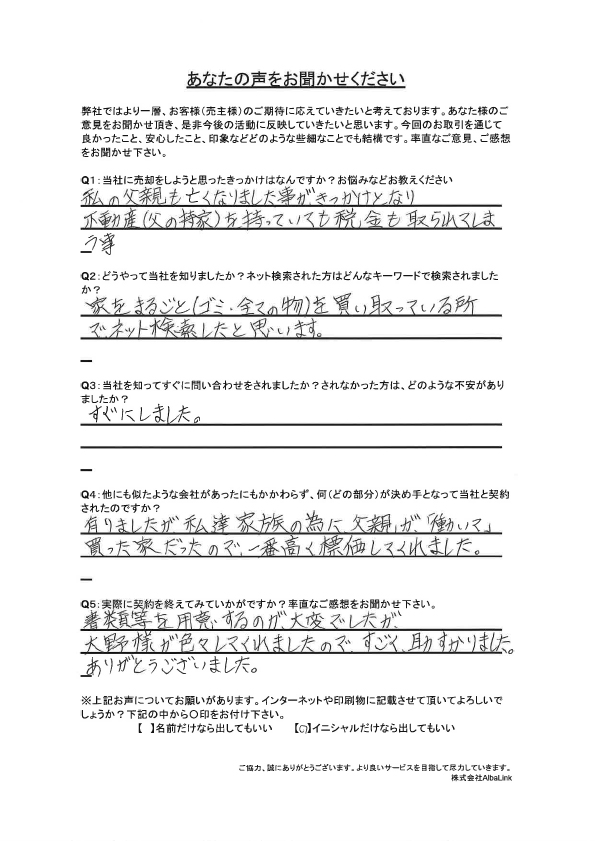 あなたの声をお聞かせください
弊社ではより一層、お客様(売主様)のご期待に応えていきたいと考えております。あなた様のご
意見をお聞かせ頂き、是非今後の活動に反映していきたいと思います。今回のお取引を通じて
良かったこと、安心したこと、印象などどのような些細なことでも結構です。率直なご意見、ご感想
をお聞かせ下さい。
Q1:当社に売却をしようと思ったきっかけはなんですか?お悩みなどお教えください
私の父親も亡くなりました事がきっかけとなり
不動産(父の持家)を持っていても税金も取られてしま
う事
Q2:どうやって当社を知りましたか?ネット検索された方はどんなキーワードで検索されました
か?
家をまるごと(ゴミ・全ての物)を買い取っている所
で、ネット検索したと思います。
Q3:当社を知ってすぐに問い合わせをされましたか?されなかった方は、どのような不安があり
ましたか?
すぐにしました。
Q4:他にも似たような会社があったにもかかわらず、何(どの部分)が決め手となって当社と契約
されたのですか?
有りましたが私達家族の為に、父親が「働いて」
買った家だったので、一番高く標価してくれました。
Q5:実際に契約を終えてみていかがですか?率直なご感想をお聞かせ下さい。
書類等を用意するのが大変でしたが
大野様が色々してくれましたので、すごく、助すかりました。
ありがとうございました。
※上記お声についてお願いがあります。インターネットや印刷物に記載させて頂いてよろしいで
しょうか?下記の中から〇印をお付け下さい。
【 】名前だけなら出してもいい 【○】イニシャルだけなら出してもいい
ご協力、誠にありがとうございます。より良いサービスを目指して尽力していきます。
株式会社AlbaLink